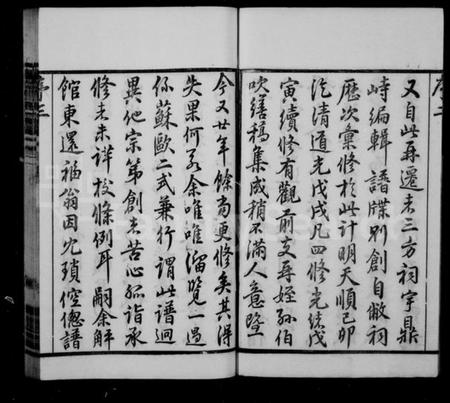 序二
又自此再遷者三方祠宇鼎
峙編輯譜牒別創自敝祠
歷次彙修於此計明天順己卯
迄清道光戊戌凡四修光緒戊
寅續修有觀前文再姪孫伯
吹繕稿集成稍不滿人意暨
今又廿年餘尚更修矣其得
失果何若余唯唯溜覽一過
係蘇歐二式兼行謂此譜迥
異他宗第創者苦心孤詣承
修者未詳按條例耳嗣余解
館東還福翁因冗瑣倥傯譜
序三